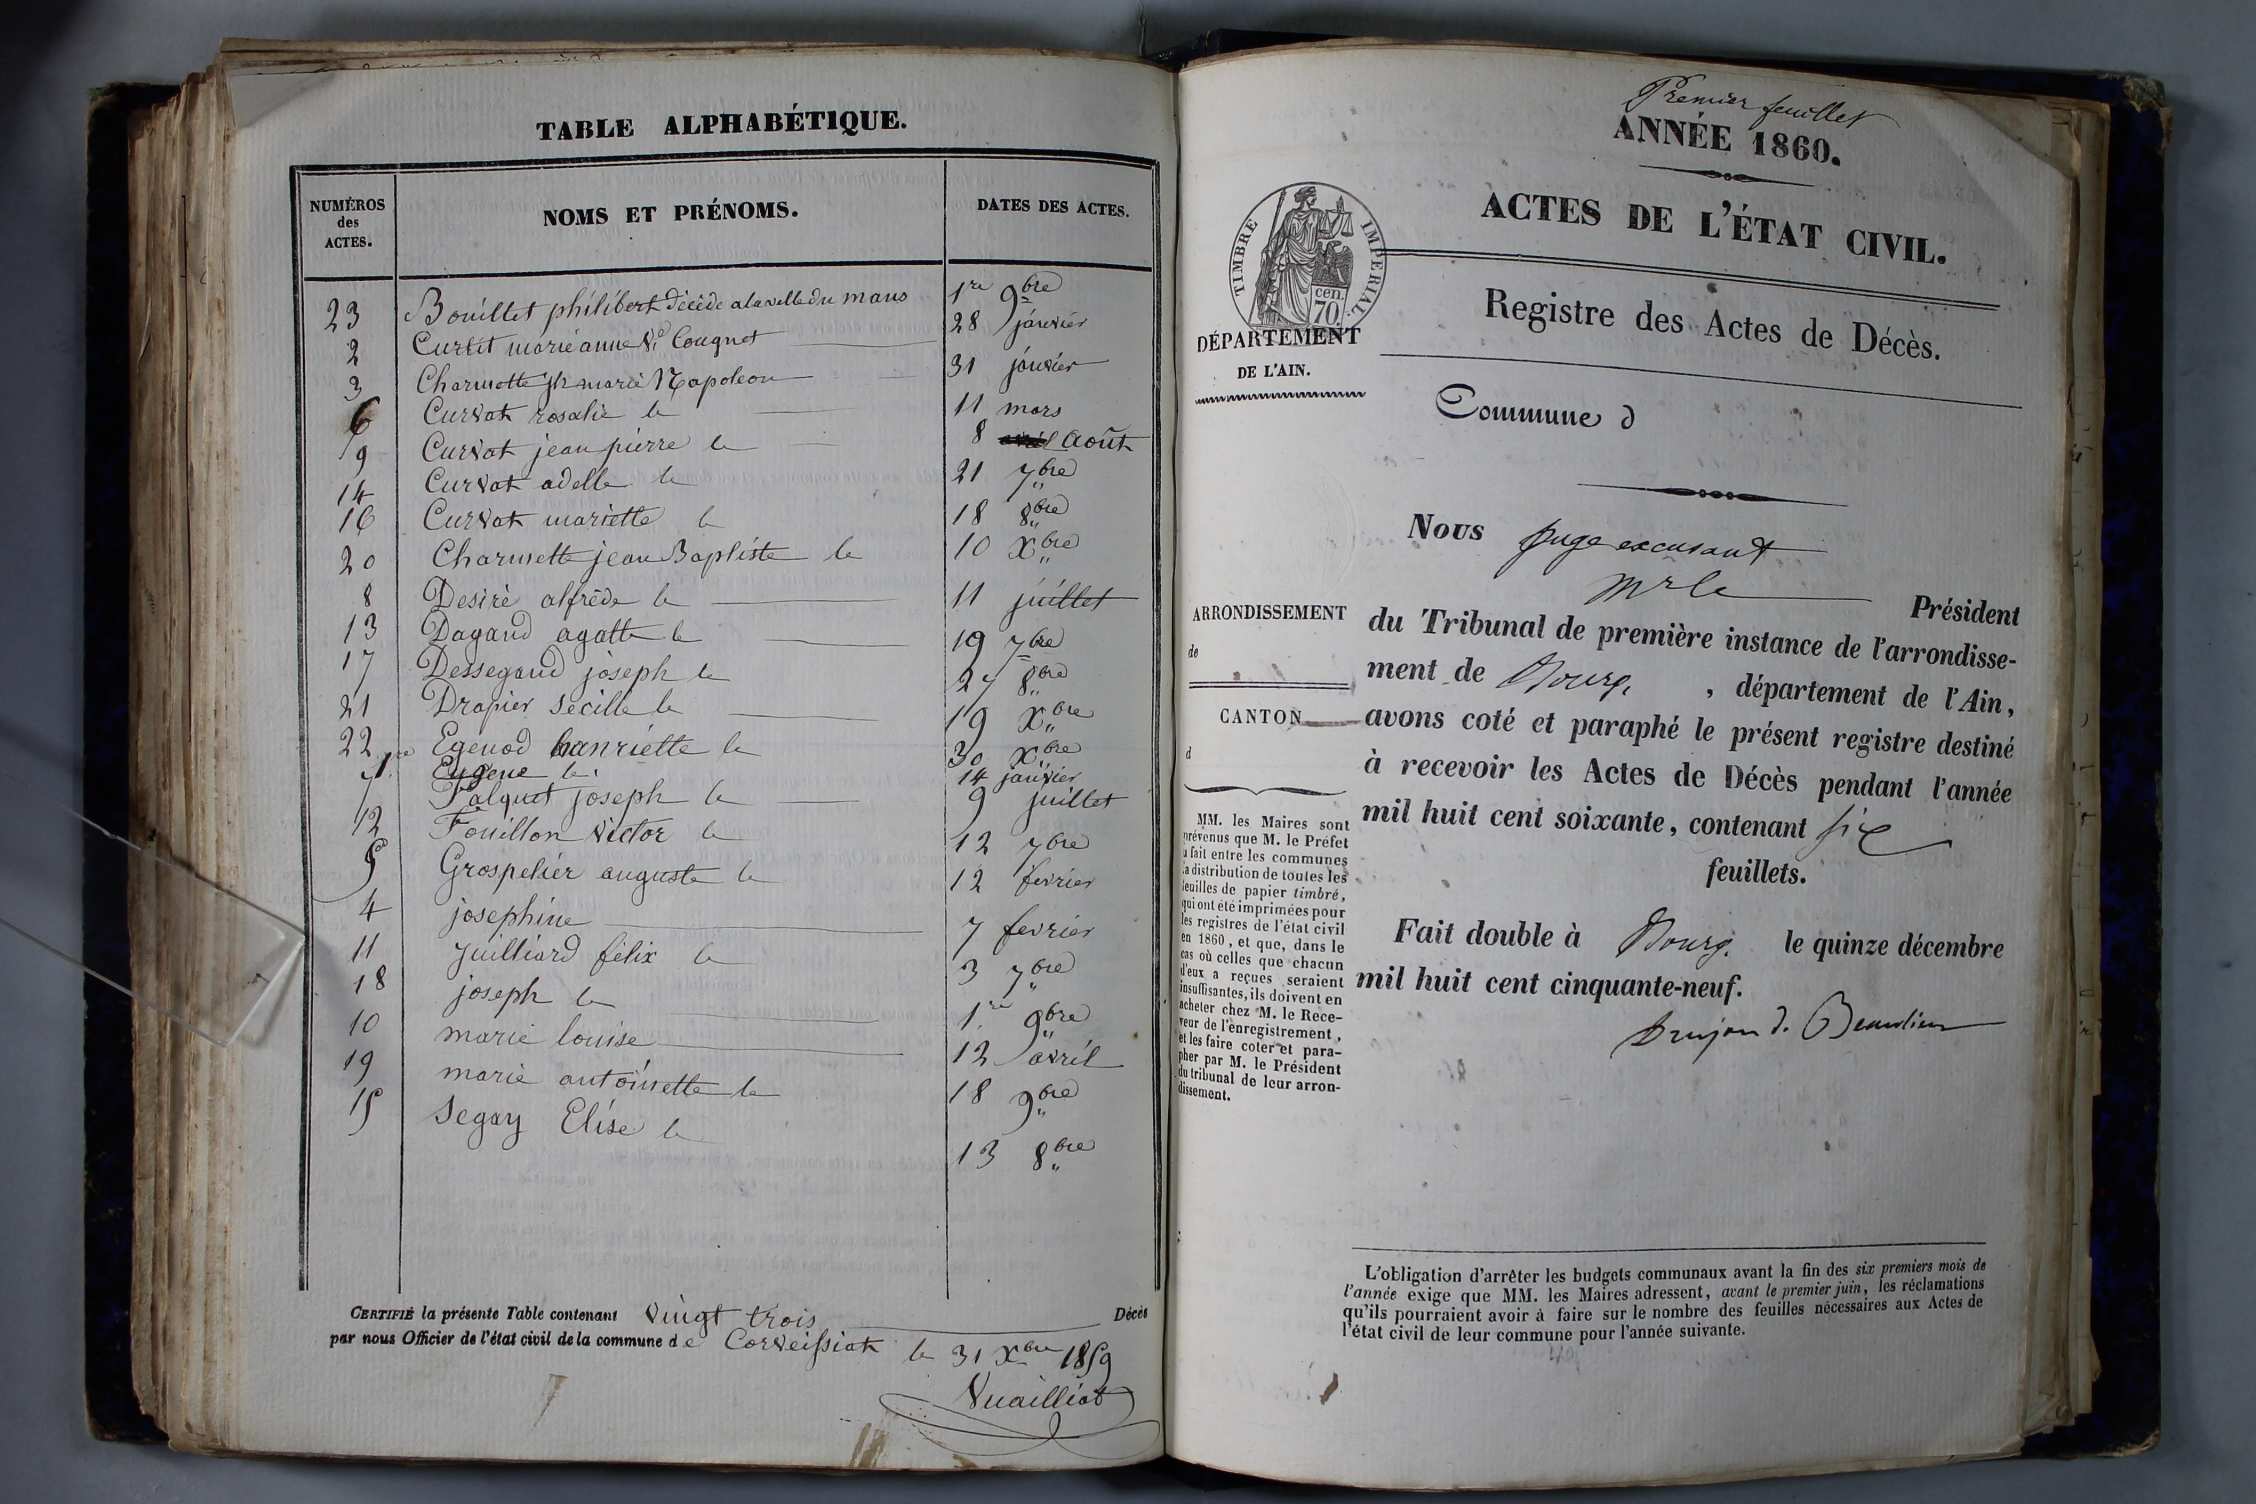 TABLE ALPHABÉTIQUE.
NUMÉROS des ACTES. NOMS ET PRÉNOMS. DATES DES ACTES.
23 Bouillet philibert décéde a la velle du mans 1re 9bre
2 Curtit marie anne Ve Cougnet 28 janvier
3 Charmette jh marie Napoleon 31 janvier
6 Curvat rosalie le 11 mars
9 Curvat jean pierre le 8 avril Août
14 Curvat adelle le 21 7bre
16 Curvat mariette le 18 8bre
20 Charmette jean Baptiste le 10 Xbre
8 Desiré alfrède le 11 juillet
13 Dagand agatte le 19 7bre
17 Dessegand joseph le 27 8bre
21 Drapier Sécille le 19 Xbre
22 Egenod hanriette le 30 Xbre
1re Eugene le 14 janvier
7 Falquet joseph le 9 juillet
12 Fouillon victor le 12 7bre
5 Grospelier auguste le 12 fevrier
4 josephine 7 fevrier
11 juilliard félix le 3 7bre
18 joseph le 1re 9bre
10 marie louise 12 avril
19 marie antoinette le 18 9bre
15 Segay Elise le 13 8bre
CERTIFIÉ la présente Table contenant vingt trois Décès
par nous Officier de l'état civil de la commune de Corveissiat le 31 Xbre 1859
Vuailliat
Premier feuillet
ANNÉE 1860.
ACTES DE L'ÉTAT CIVIL.
TIMBRE IMPÉRIAL.
70 cen.
Registre des Actes de Décès.
DÉPARTEMENT
DE L'AIN.
Commune d
ARRONDISSEMENT
de
CANTON
d
MM. les Maires sont
prévenus que M. le Préfet
a fait entre les communes
la distribution de toutes les
feuilles de papier timbré,
qui ont été imprimées pour
les registres de l'état civil
en 1860, et que, dans le
cas où celles que chacun
d'eux a reçues seraient
insuffisantes, ils doivent en
acheter chez M. le Rece-
veur de l'enregistrement,
et les faire coter et para-
pher par M. le Président
du tribunal de leur arron-
dissement.
Nous juge excusant
Mr le Président
du Tribunal de première instance de l'arrondisse-
ment de Bourg, département de l'Ain,
avons coté et paraphé le présent registre destiné
à recevoir les Actes de Décès pendant l'année
mil huit cent soixante, contenant six
feuillets.
Fait double à Bourg. le quinze décembre
mil huit cent cinquante-neuf.
Drujon d. Beaulieu
L'obligation d'arrêter les budgets communaux avant la fin des six premiers mois de
l'année exige que MM. les Maires adressent, avant le premier juin, les réclamations
qu'ils pourraient avoir à faire sur le nombre des feuilles nécessaires aux Actes de
l'état civil de leur commune pour l'année suivante.